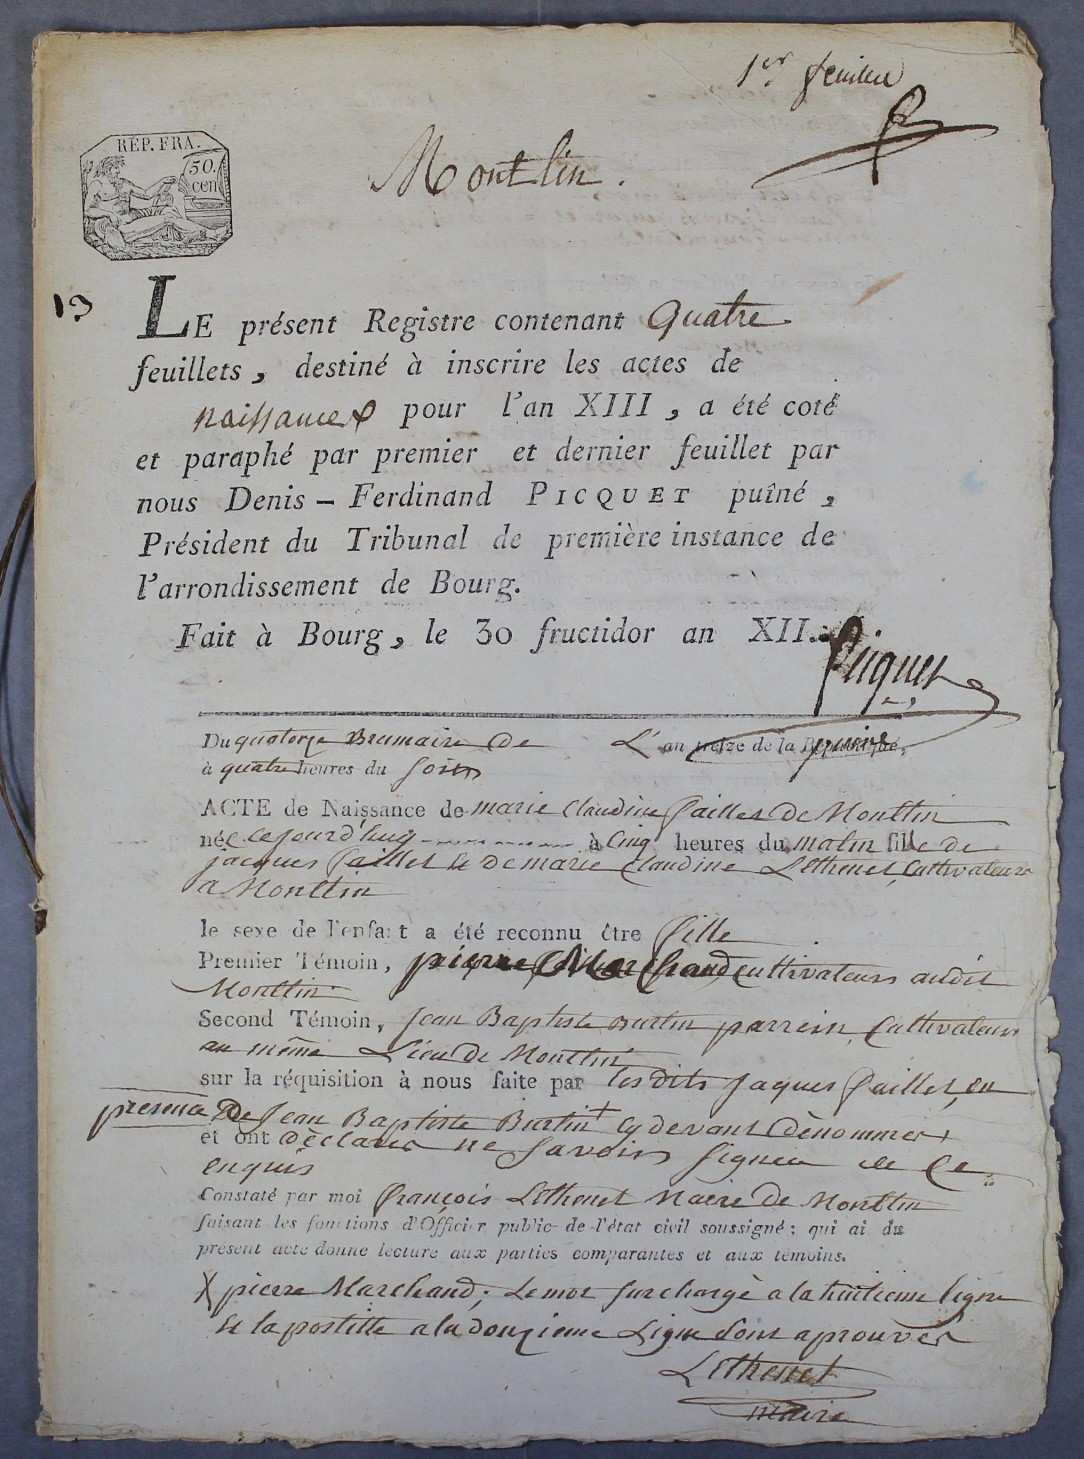 1er feuillet
REP. FRA.
50.
cen
Montlin.
13
LE présent Registre contenant Quatre
feuillets, destiné à inscrire les actes de
naissances pour l'an XIII, a été coté
et paraphé par premier et dernier feuillet par
nous Denis - Ferdinand PICQUET puîné,
Président du Tribunal de première instance de
l'arrondissement de Bourg.
Fait à Bourg, le 30 fructidor an XII.
Picquet
puine
Du quatorze Brumaire de L'an treize de la République,
à quatre heures du soir
ACTE de Naissance de marie Claudine failles de Montlin
née cejourd'huy à Cinq heures du matin fille de
jacques faillet & de marie Claudine Lethenet, Cultivateurs
a Montlin
le sexe de l'enfant a été reconnu être fille
Premier Témoin, pierre Marchand cultivateurs audit
Montlin
Second Témoin, Jean Baptiste Burtin parrein, Cultivateurs
au même Lieu de Montlin
sur la réquisition à nous faite par les dits jaques faillet, en
presence De Jean Baptiste Burtin + cy devant dènommer
et ont dèclarer ne savoir signer de Ce
enquis
Constaté par moi françois Lethenet Maire de Montlin
faisant les fonctions d'Officier public de l'état civil soussigné; qui ai du
présent acte donné lecture aux parties comparantes et aux témoins.
X pierre Marchand; Le mot surchargè a la huitieme ligne
& la postille a la douzieme Ligne sont aprouver
Lethenet
maire